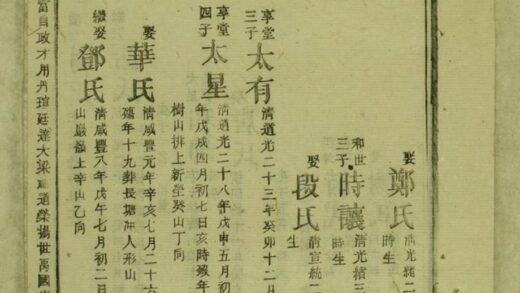 娶鄭氏
清光緒二
時生
和世三子時讓
清光緒三
時生
娶段氏
清宣統二
生
享堂三子太有
清道光二十三年癸卯十二月
享堂四子太星
清道光二十八年戊申五月初
年戊戌四月初七日亥時歿年
樹山排上新塋癸山丁向
娶華氏
清咸豐元年辛亥七月二十六
年十九葬長塘人形山
繼娶鄧氏
清咸豐八年戊午七月初二日
山嚴上辛山乙向
富自政才用丹瑄廷達大梁道榮揚世萬國